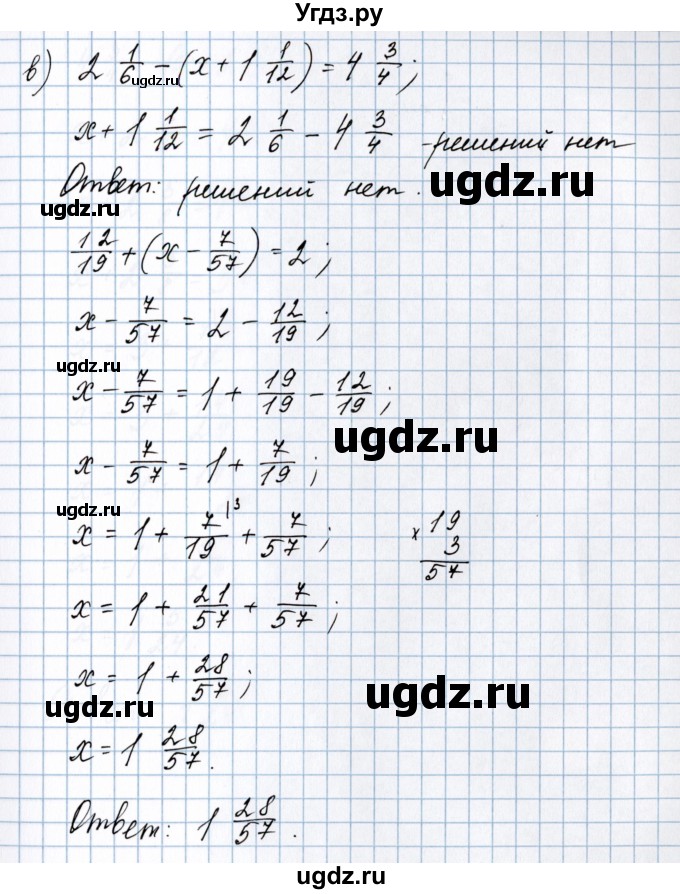 Угдз.ру
в) 2 1/6 - (x + 1 1/12) = 4 3/4;
ugdz.ru
x + 1 1/12 = 2 1/6 - 4 3/4 - решений нет
Ответ: решений нет.
ugdz.ru
ugdz.ru
12/19 + (x - 7/57) = 2;
x - 7/57 = 2 - 12/19;
ugdz.ru
x - 7/57 = 1 + 19/19 - 12/19;
ugdz.ru
x - 7/57 = 1 + 7/19;
x = 1 + 7/19 |3 + 7/57;
× 19
3
57
x = 1 + 21/57 + 7/57;
x = 1 + 28/57;
ugdz.ru
ugdz.ru
x = 1 28/57.
Ответ: 1 28/57.
ugdz.ru